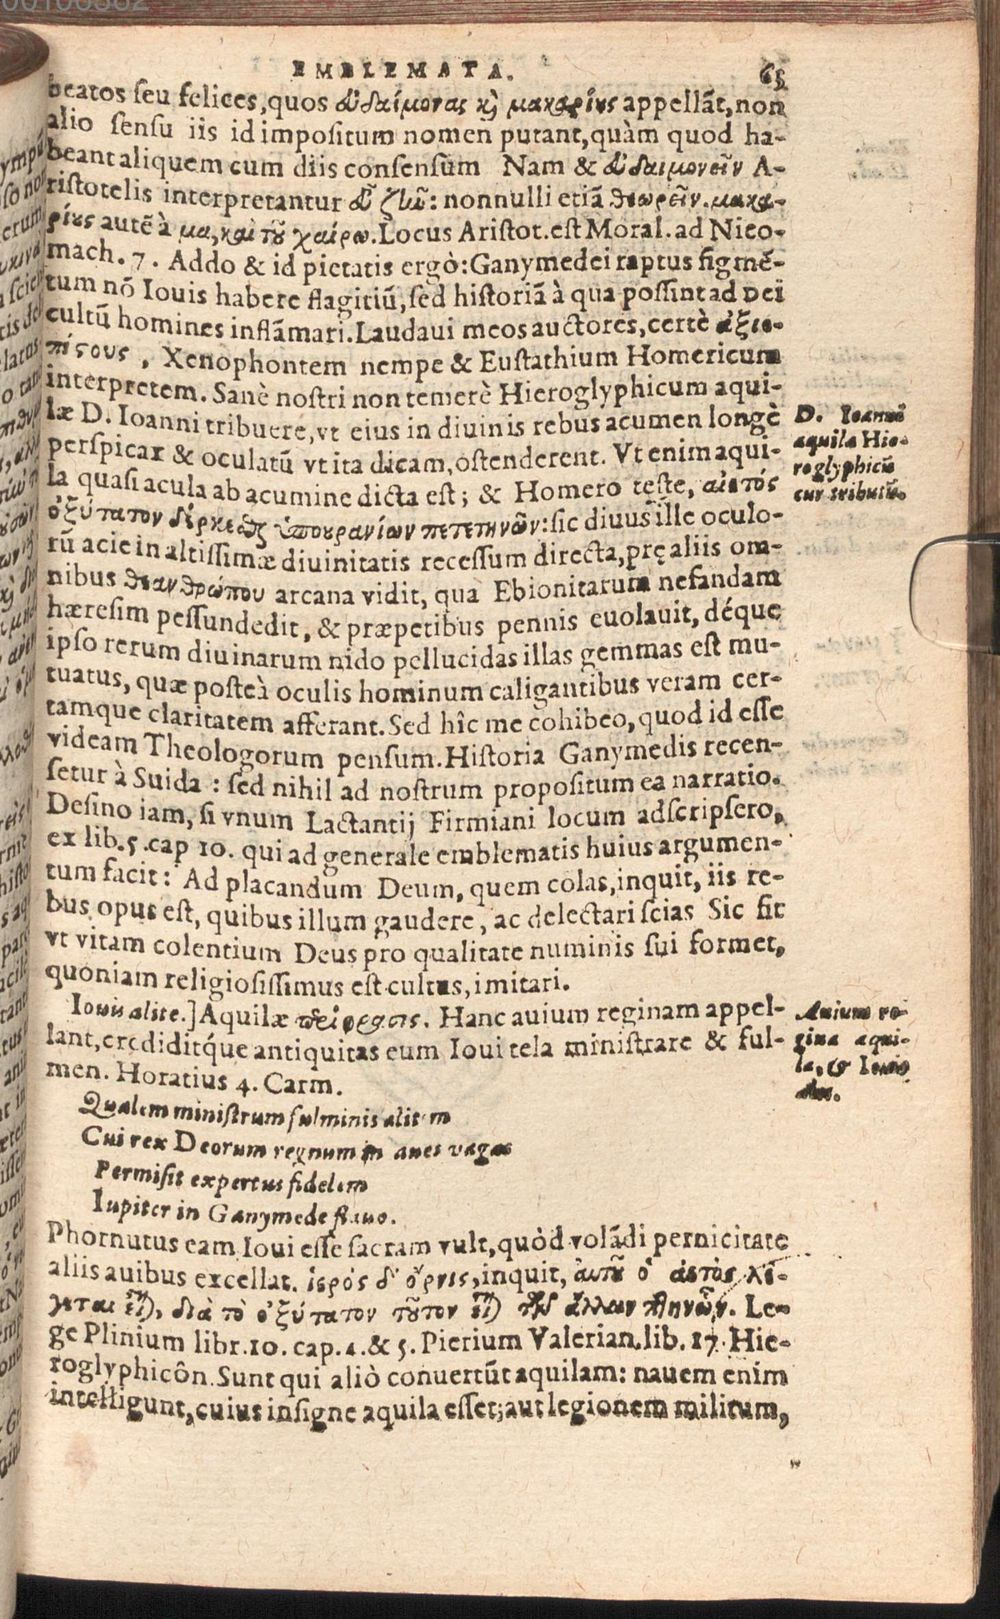 EMBLEMATA. 65
beatos seu felices, quos εὐδαίμονας κỳ μακαρίȣς appellāt, non
alio sensu iis id impositum nomen putant, quàm quod ha-
beant aliquem cum diis consensum Nam & εὐδαιμονεῖν A-
ristotelis interpretantur εὖ ζῆν: nonnulli etiā θεωρεῖν. μακα-
ρίȣς autē à μα, καὶ τȣ͂ χαίρω. Locus Aristot. est Moral. ad Nico-
mach. 7. Addo & id pietatis ergò: Ganymedei raptus figmē-
tum nō Iouis habere flagitiū, sed historiā à qua possint ad Dei
cultū homines inflāmari. Laudaui meos auctores, certè ἀξιο-
πίςους, Xenophontem nempe & Eustathium Homericum
interpretem. Sanè nostri non temerè Hieroglyphicum aqui-
læ D. Ioanni tribuere, vt eius in diuinis rebus acumen longè
perspicax & oculatū vt ita dicam, ostenderent. Vt enim aqui-
la quasi acula ab acumine dicta est; & Homero teste, αἰετός
ὀξύτατον δέρκεσθαι ὑπουρανίων πετετηνῶν: sic diuus ille oculo-
rū acie in altissimæ diuinitatis recessum directa, pręaliis om-
nibus θεανθρώπου arcana vidit, qua Ebionitarum nefandam
hæresim pessundedit, & præpetibus pennis euolauit, déque
ipso rerum diuinarum nido pellucidas illas gemmas est mu-
tuatus, quæ posteà oculis hominum caligantibus veram cer-
tamque claritatem afferant. Sed hîc me cohibeo, quod id esse
videam Theologorum pensum. Historia Ganymedis recen-
setur à Suida: sed nihil ad nostrum propositum ea narratio.
Desino iam, si vnum Lactantij Firmiani locum adscripsero,
ex lib. 5. cap 10. qui ad generale emblematis huius argumen-
tum facit: Ad placandum Deum, quem colas, inquit, iis re-
bus opus est, quibus illum gaudere, ac delectari scias Sic fit
vt vitam colentium Deus pro qualitate numinis sui formet,
quoniam religiosissimus est cultus, imitari.
Iouis alite.] Aquilæ περίφρασις. Hanc auium reginam appel-
lant, credidítque antiquitas eum Ioui tela ministrare & ful-
men. Horatius 4. Carm.
Qualem ministrum fulminis alitem
Cui rex Deorum regnum in aues vagas
Permisit expertus fidelem
Iupiter in Ganymede flauo.
Phornutus eam Ioui esse sacram vult, quòd volādi pernicitate
aliis auibus excellat. ἱερὸς δ᾽ ὄρνις, inquit, αυτȣ͂ ὁ ἀετὸς λέ-
γεται εἶναι, διὰ τὸ ὀξύτατον τȣ͂τον εἶναι τῶν ἄλλων πτηνῶν. Le-
ge Plinium libr. 10. cap. 4. & 5. Pierium Valerian. lib. 17. Hie-
roglyphicôn. Sunt qui aliò conuertūt aquilam: nauem enim
intelligunt, cuius insigne aquila esset; aut legionem militum,
D. Ioanni
aquila Hie-
roglyphicū
cur tributū.
Auium re-
gina aqui-
la, & Iouis
ales.